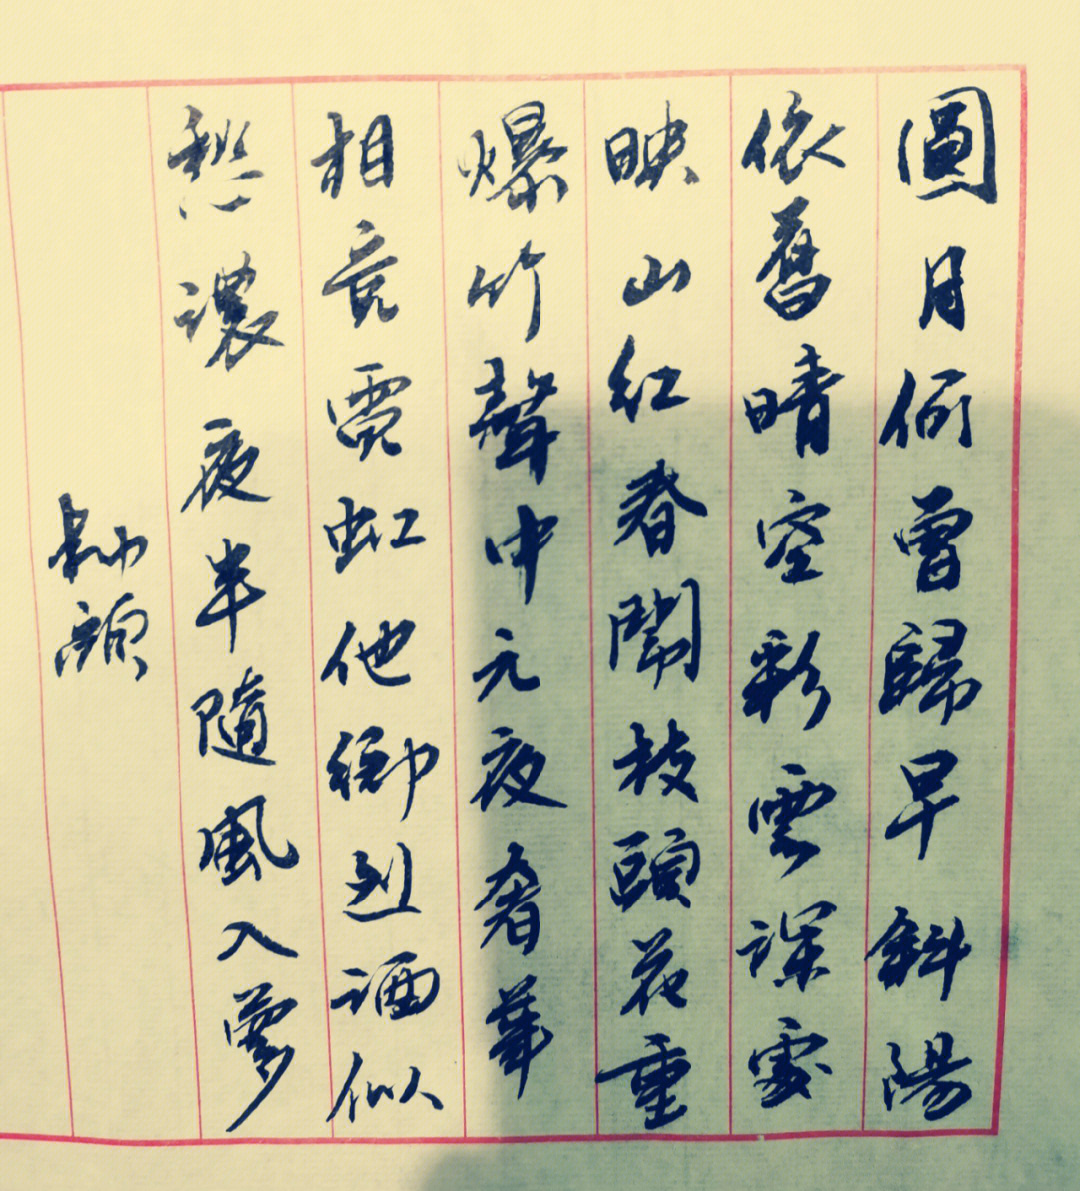 圓月何曾歸早斜陽
依舊晴空彩雲深處
映山紅春鬧枝頭花重
爆竹聲中元夜奢華
相竞霓虹他鄉烈酒似
愁濃夜半隨風入夢